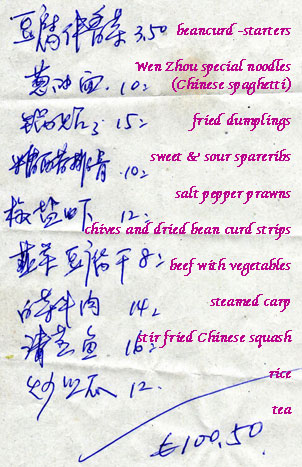 豆腐伴香菜 3.50 beancurd -starters
葱油面. 10: Wen Zhou special noodles
(Chinese spaghetti)
15: fried dumplings
糖醋排骨 10: sweet & sour spareribs
salt pepper prawns
椒盐虾 12:
chives and dried bean curd strips
韭菜豆腐干 8: beef with vegetables
时菜牛肉 14: steamed carp
清蒸鱼 16: stir fried Chinese squash
炒丝瓜 12. rice
tea
€100.50